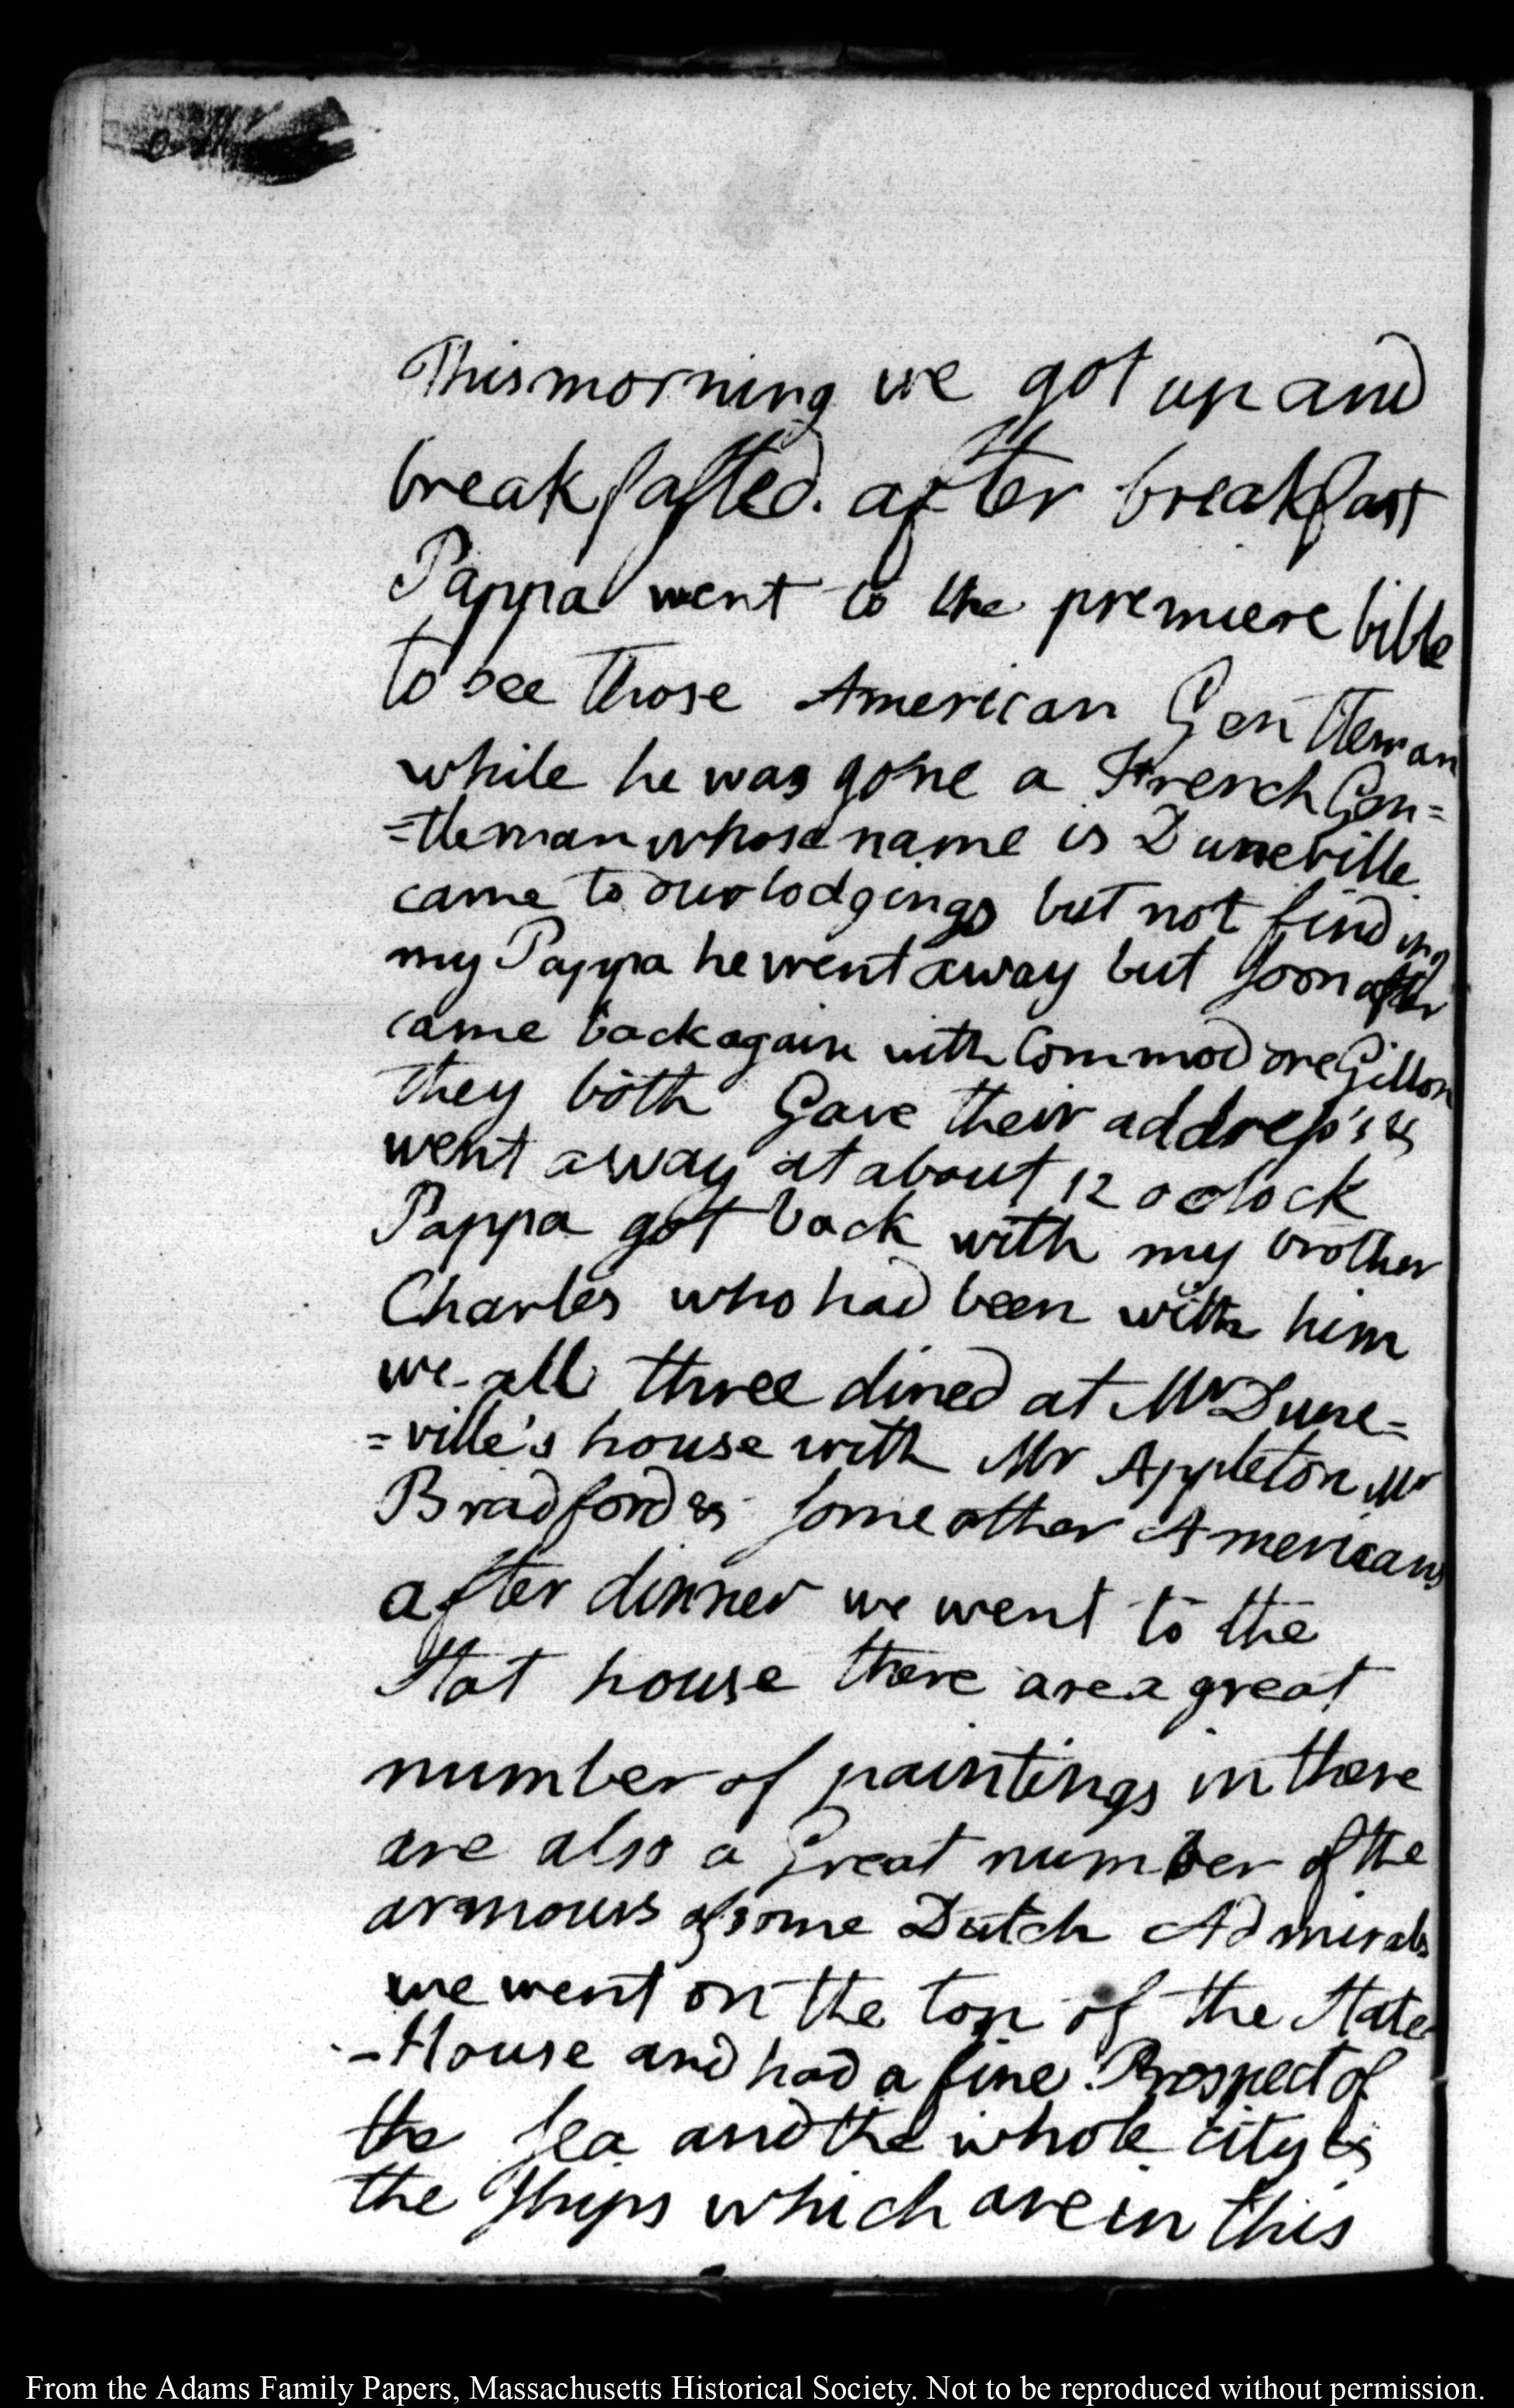 This morning we got up and
breakfasted. after breakfast
Pappa went to the premiere bible
to see those American Gentleman
while he was gone a French Gen=
=tleman whose name is Duneville
came to our lodgings but not finding
my Pappa he went away but soon after
came back again with Commodore Gillon
they both Gave their address's &
went away at about 12 oclock
Pappa got back with my brother
Charles who had been with him
we all three dined at Mr Dune=
=ville's house with Mr Appleton Mr
Bradford & some other Americans
after dinner we went to the
Stat house there are a great
number of paintings in there
are also a Great number of the
armours of some Dutch Admirals
we went on the top of the State-
-House and had a fine Prospect of
the Sea and the whole city &
the Ships which are in this
From the Adams Family Papers, Massachusetts Historical Society. Not to be reproduced without permission.